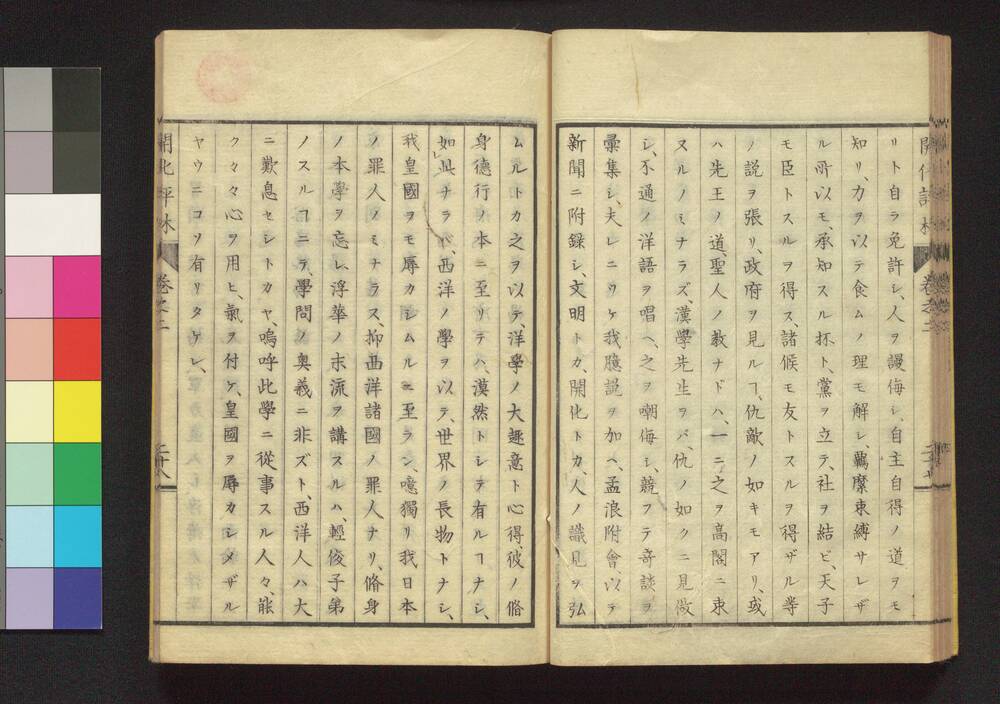 リト自ラ免許シ、人ヲ謾侮シ、自主自得ノ道ヲモ
知リ、力ヲ以テ食ムノ理モ解シ、羈縻束縛サレザ
ル所以モ、承知スル抔ト、黨ヲ立テ、社ヲ結ビ、天子
モ臣トスルヲ得ス、諸候モ友トスルヲ得ザル等
ノ説ヲ張リ、政府ヲ見ルヿ、仇敵ノ如キモアリ、或
ハ先王ノ道、聖人ノ教ナドハ、一ニ之ヲ高閣ニ束
ヌルノミナラズ、漢學先生ヲバ、仇ノ如クニ見做
シ、不通ノ洋語ヲ唱ヘ、之ヲ嘲侮シ、競フテ奇談ヲ
彙集シ、夫レニツケ我臆説ヲ加ヘ、孟浪附會、以テ
新聞ニ附録シ、文明トカ、開化トカ、人ノ識見ヲ弘
ムルトカ之ヲ以テ、洋學ノ大趣意ト心得、彼ノ脩
身德行ノ本ニ至リテハ、漠然トシテ有ルヿナシ、
如此ナラバ、西洋ノ學ヲ以テ、世界ノ長物トナシ、
我皇國ヲモ辱カシムルニ至ラン、噫獨リ我日本
ノ罪人ノミナラス、抑西洋諸國ノ罪人ナリ、脩身
ノ本學ヲ忘レ、浮華ノ末流ヲ講スルハ、輕俊子弟
ノスルヿニテ、學問ノ奥義ニ非ズト、西洋人ハ大
ニ歎息セシトカヤ、嗚呼此學ニ從事スル人々、能
ク々々心ヲ用ヒ、氣ヲ付ケ、皇國ヲ辱カシメザル
ヤウニコソ有リタケレ、
卷之二